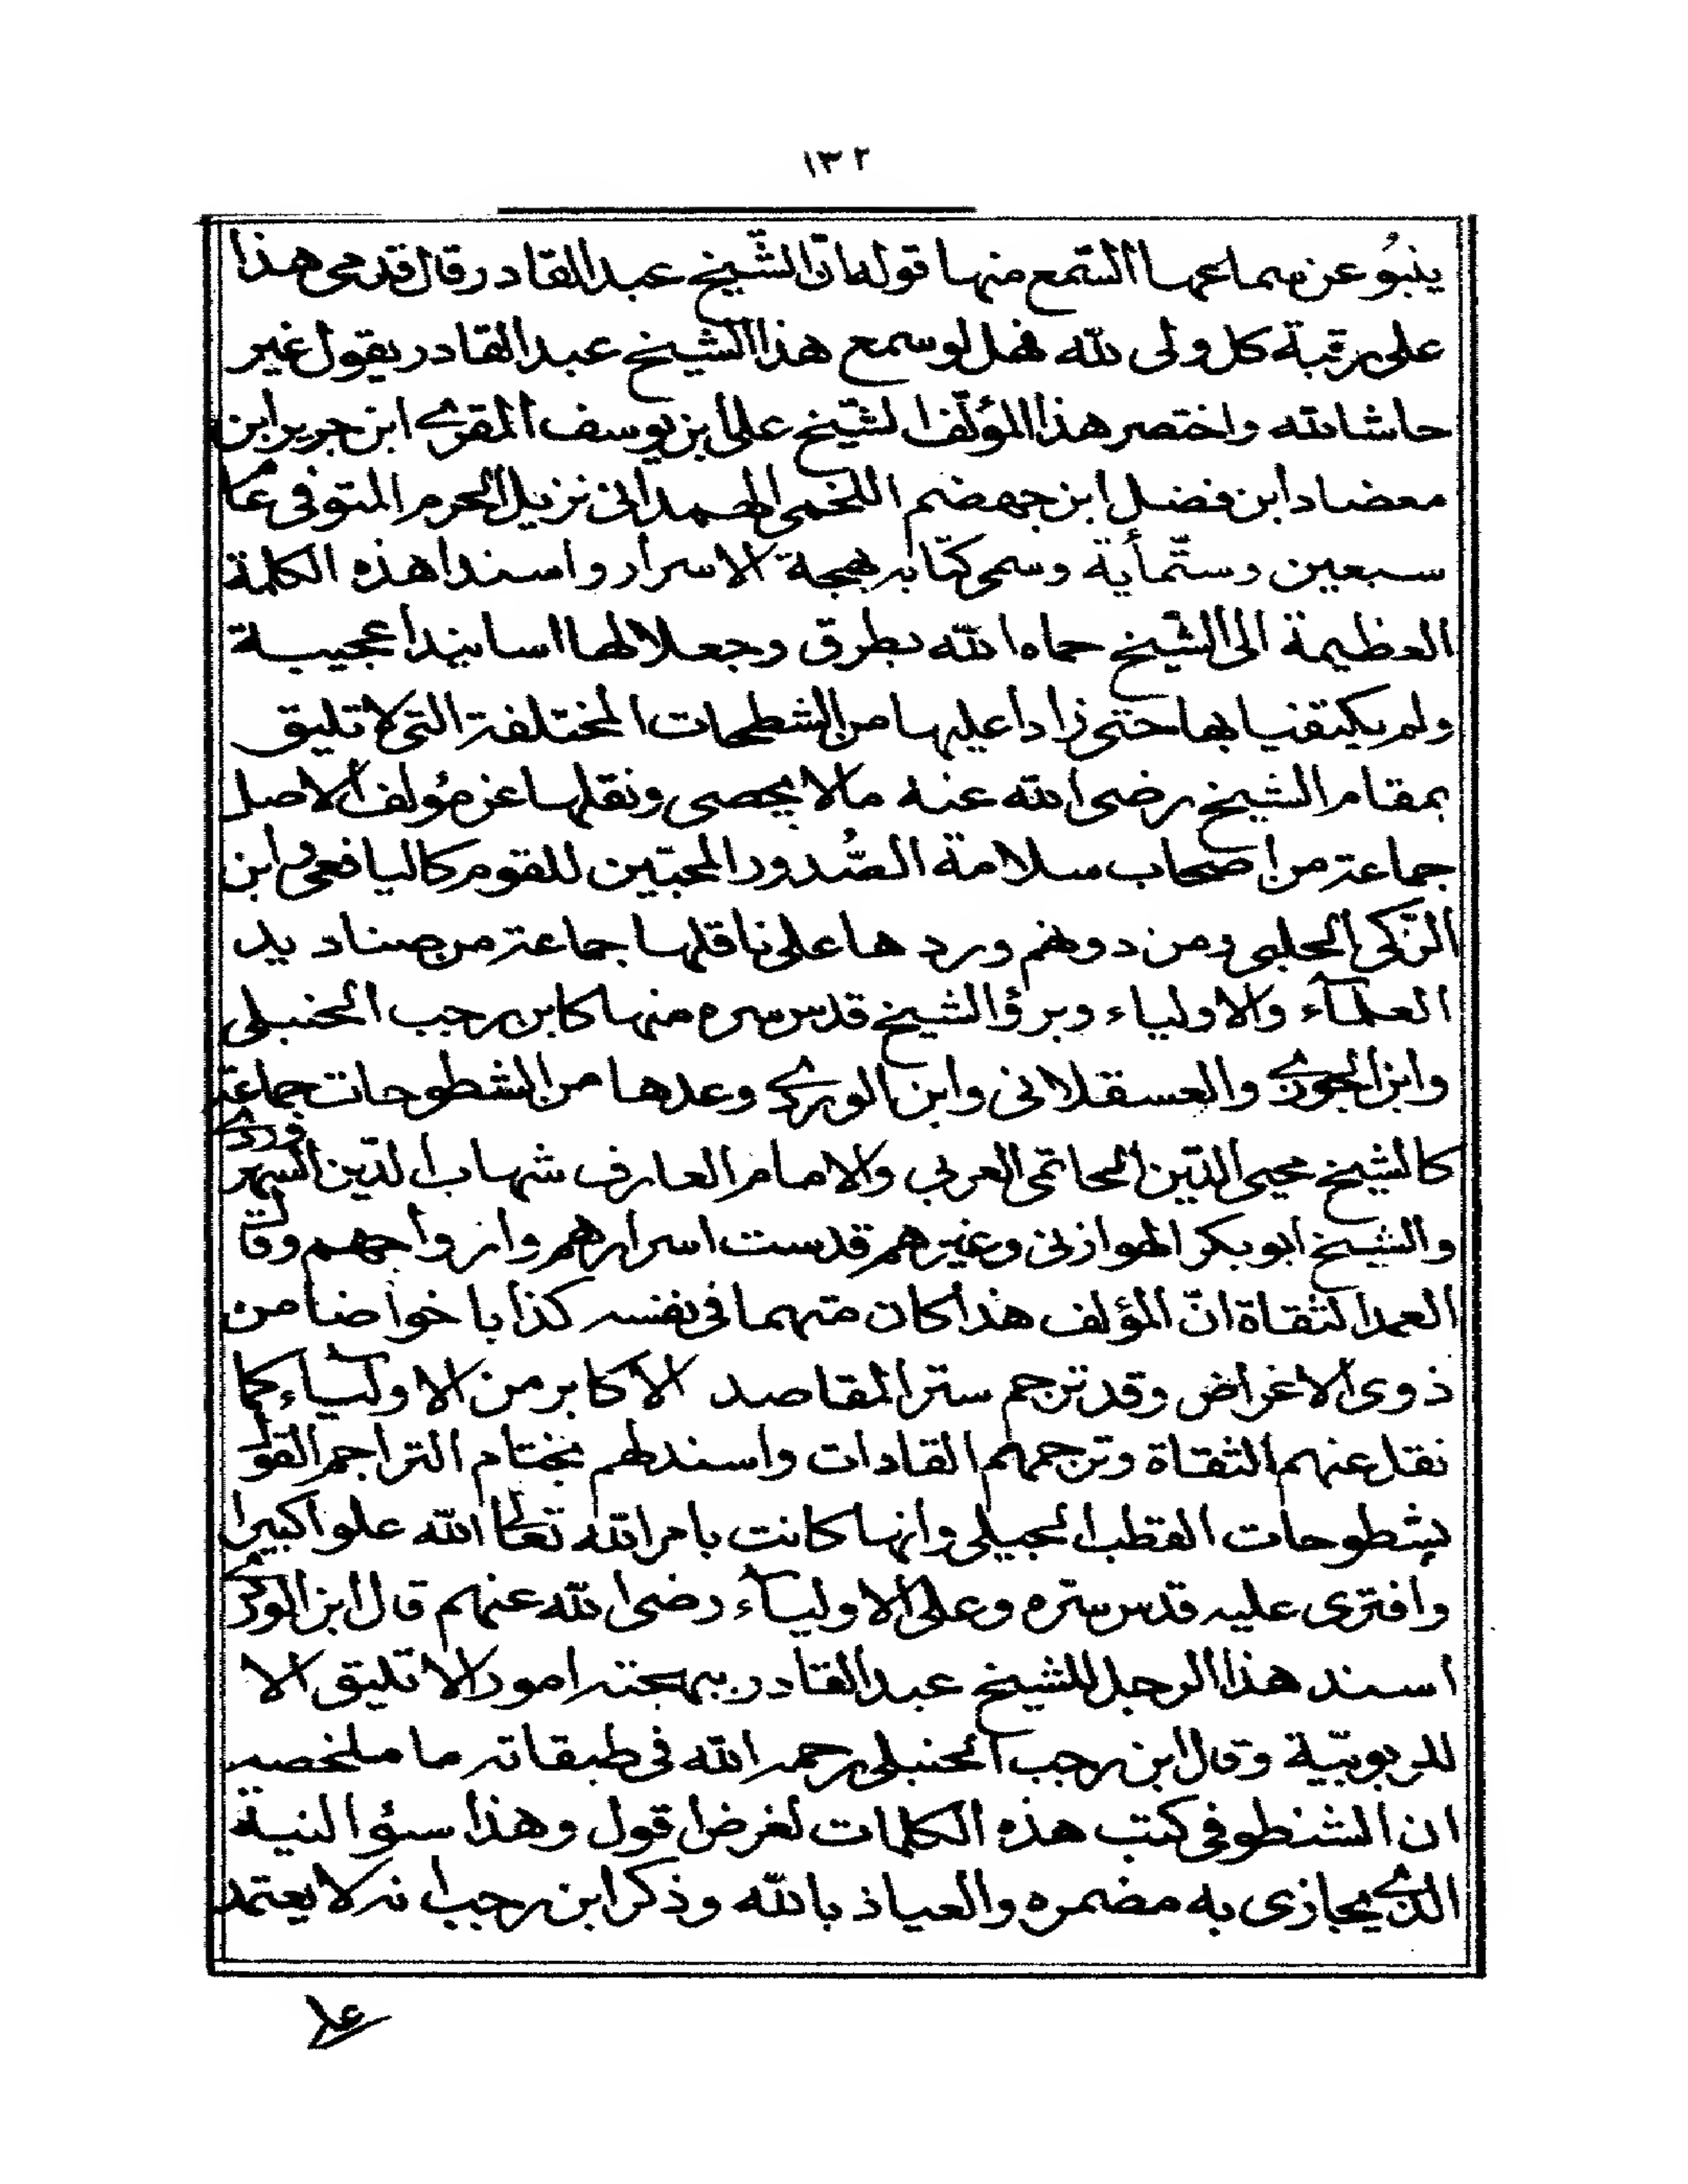 ١٣٢
ينبُو عن سماعها السّمع منها قوله انّ الشّيخ عبد القادر قال قدمى هذا
على رقبة كل ولى لله فهل لو سمع هذا الشيخ عبد القادر يقول غير
حاشا لله واختصر هذا المؤلّف الشّيخ على ابن يوسف المقرى ابن جرير ابن
معضاد ابن فضل ابن جهضم اللخمى الهمدانى نزيل الحرم المتوفى عام
سبعين وستّمأية وسمى كتابه بهجة الاسرار واسندا هذه الكلمة
العظيمة الى الشيخ حماه الله بطرق وجعلا لها اسانيدا عجيبة
ولم يكتفيا بها حتى زادا عليها من الشطحات المختلفة التى لا تليق
بمقام الشيخ رضى الله عنه ما لا يحصى ونقلها عن مؤلف الاصل
جماعة من اصحاب سلامة الصُّدور المحبّين للقوم كاليافعى وابن
الزّكى الحلبى ومن دونهم ورد ها على ناقلها جماعة من صناديد
العلمآء والاولياء وبرؤ الشيخ قدس سره منها كابن رجب الحنبلى
وابن الجوزى والعسقلانى وابن الوردى وعدها من الشطوحات جماعة
كالشيخ محيى الدّين الحاتمى العربى والامام العارف شهاب الدّين السهروردى
والشيخ ابو بكر الهوازنى وغيرهم قدست اسرارهم وارواحهم وقالت
العمد الثقاة انّ المؤلف هذا كان متهما فى نفسه كذابا خواضا من
ذوى الاغراض وقد ترجم سترا لمقاصد الاكابر من الاوليآء كما
نقل عنهم الثقاة وترجمهم القادات واسند لهم بختام التراجم القول
بشطوحات القطب الجيلى وانها كانت بامر الله تعالى الله علوا كبيرا
وافترى عليه قدس سرّه وعلى الاوليآء رضى الله عنهم قال ابن الوردى
اسند هذا الرجل للشيخ عبد القادر ببهجته امورا لا تليق الا
للربوبيّة وقال ابن رجب الحنبلى رحمه الله فى طبقاته ما ملخصه
ان الشنطوفى كتب هذه الكلمات لغرض اقول وهذا سؤ النية
الذى يجازى به مضمره والعياذ بالله وذكر ابن رجب انه لا يعتمد
على